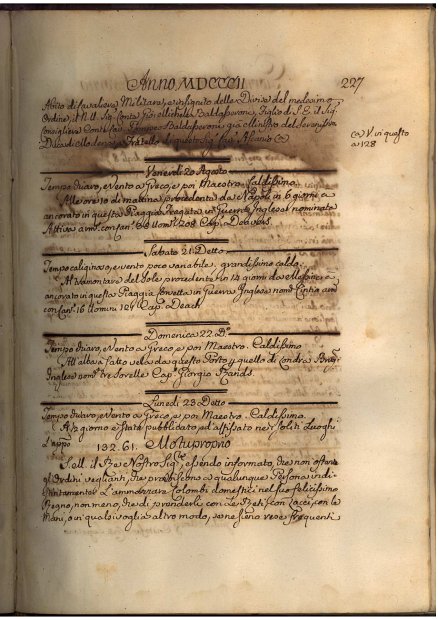 Anno MDCCCII 227
Abito di Cavaliere Militare, e insignito delle Divise del medesimo
Ordine, il N. U. Sig. Conte Michele Baldasseroni, Figlio di S. E. il Sig.
Consigliere Conte Pompeo Baldasseroni già Ministro del Serenissimo
Duca di Modena, e Fratello di questo Sig.
(a) V. in questo
a 128
Venerdì 20 Agosto
Tempo chiaro, e Vento a Greco, e poi Maestro. Caldissimo
Alle ore 10 di mattina procedente da Napoli in 6 giorni è
ancorato in questa Spiaggia Fregata in Guerra Inglese nominata
con Can. 38 Uomini 208 Cap.
Sabato 21 Detto
Tempo caliginoso, e vento poco variabile, grandissimo caldo.
Al tramontare del Sole procedente in 14 giorni da Maone è
ancorato in questa Spiaggia Corvetta in Guerra Inglese nom. Cintia
con Can. 16 Uomini Cap. Deach
Domenica 22 D.
Tempo chiaro, e Vento a Greco, e poi Maestro. Caldissimo
All'alba a fatto vela da questo Porto p quello di Londra
Inglese nom. tre Sorelle Cap. Giorgio Rands.
Lunedì 23 Detto
Tempo chiaro, e Vento a Greco, e poi Maestro. Caldissimo.
A 1/2 giorno è stato pubblicato, ed affissato nei soliti Luoghi
L'appo 132. 61. Motuproprio
S. M. il Re Nostro Sig.re essendo informato, che non ostante
gl'Ordini veglianti, che proibiscono a qualunque Persona indi-
stintamente L'ammazzare Colombi domestici nel suo felicissimo
Regno, non meno, che di prenderli con Le Reti, con Lacci, con le
Mani, o in qualsivoglia altro modo, se ne sieno rese frequenti